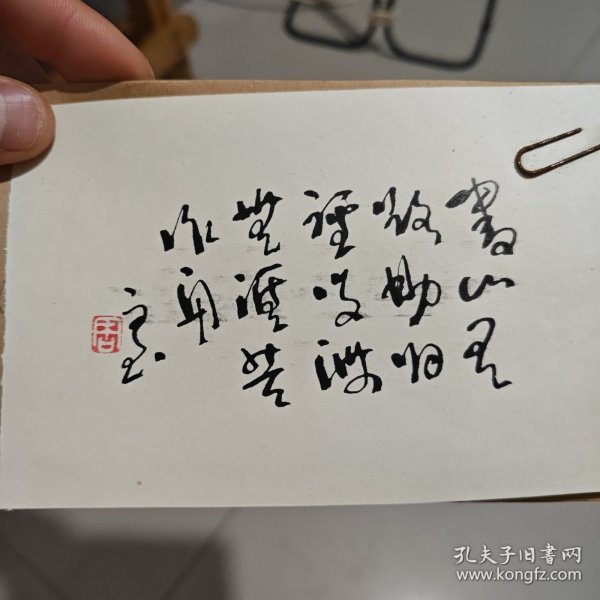 書山有
路勤为
徑学海
無涯苦
作舟
孔夫子旧書网
www.kongfz.com